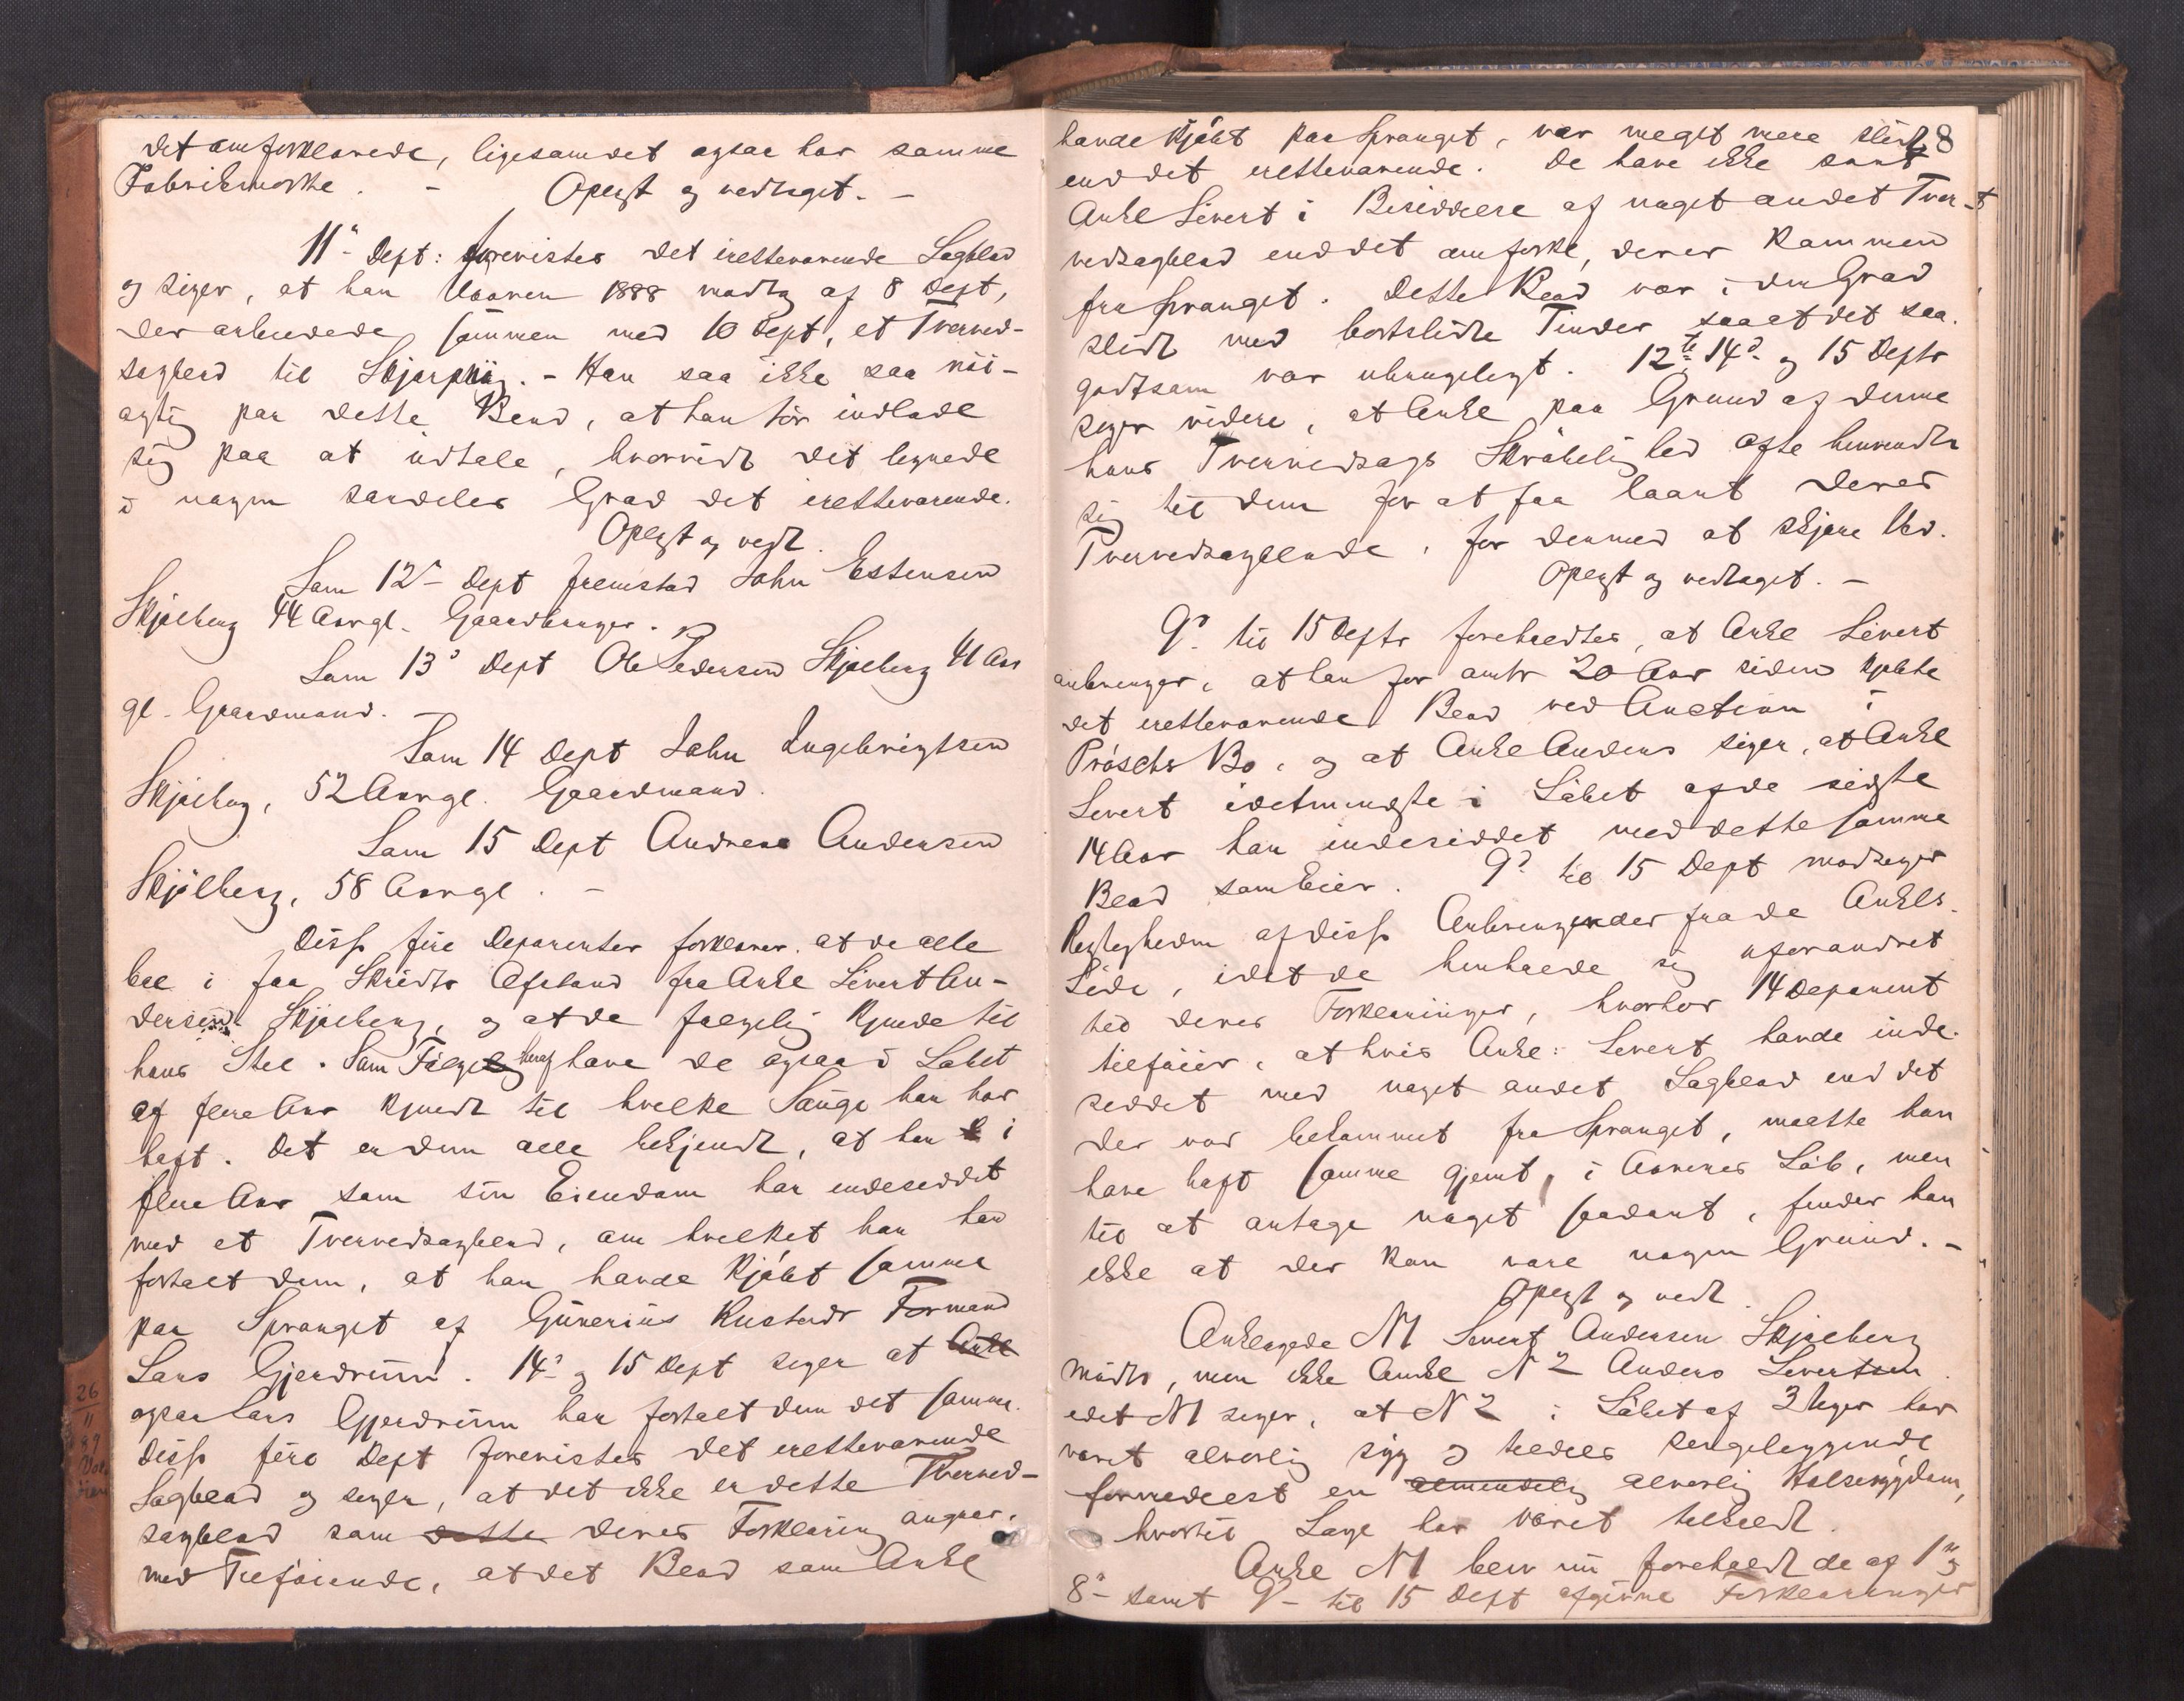 det omforklarede, ligesom det ogsaa har samme
Fabrikmærke. - Oplæst og vedtaget. -
11te Dept: forevistes det iretteværende Sagblad
og siger, at han Vaaren 1888 modtog af 8 Dept,
der arbeidede sammen med 10 Dept, et Tverved-
sagblad til Skjærping. - Han saa ikke saa nöi-
agtig paa dette Blad, at han tör indlade
sig paa at udtale, hvorvidt det lignede
i nogen særdeles Grad det iretteværende.
Oplæst og vedt.
Som 12te Dept fremstod John Estensen
Skjølberg 44 Aar gl. Gaardbruger.
Som 13de Dept Ole Pedersen Skjølberg 41 Aar
gl. Gaardmand. -
Som 14 Dept John Ingebrigtsen
Skjølberg, 52 Aar gl. Gaardmand.
Som 15 Dept Andreas Andersen
Skjölberg, 58 Aar gl. -
Disse fire Deponenter forklarer, at de alle
bor i faa Skridts Afstand fra Ankl Sivert An-
dersen Skjølberg, og at de følgelig kjende til
hans Stel. Som Fölge heraf have de ogsaa i Löbet
af flere Aar kjendt til hvilke Sauge han har
haft. Det er dem alle bekjendt, at han i
flere Aar som sin Eiendom har indesiddet
med et Tvervedsagblad, om hvilket han har
fortalt dem, at han havde kjöbt samme
paa Spranget af Gunerius Rustads Formand
Lars Gjerdrum. 14de og 15 Dept siger at Ankl
ogsaa Lars Gjerdrum har fortalt dem det samme.
Disse fire Dept forevistes det iretteværende
Sagblad og siger, at det ikke er dette Tverved-
sagblad som dette deres Forklaring angaar,
med Tilföiende, at det Blad som Ankl
8
havde kjöbt paa Spranget, var meget mere slidt
end det iretteværende. De have ikke seet
Ankl Sivert i Besiddelse af noget andet Tver-
vedsagblad end det omforkl, der er kommen
fra Spranget. Dette Blad var i den Grad
slidt med bortslidte Tinder saa at det saa-
godtsom var ubrugeligt. 12te 14de og 15 Depts
siger videre, at Ankl paa Grund af denne
hans Tvervedsags Skröbelighed ofte henvendte
sig til dem for at faa laant deres
Tvervedsagblade, for dermed at skjære Ved.
Oplæst og vedtaget. -
9de til 15 Depts foreholdtes, at Ankl Sivert
anbringer, at han for omtr 20 Aar siden kjöbte
det iretteværende Blad ved Auction i
Pröschs Bo, og at Ankl Anders siger, at Ankl
Sivert idetmindste i Löbet af de sidste
14 Aar har indesiddet med dette samme
Blad som Eier. 9de til 15 Dept modsiger
Rigtigheden af disse Anbringender fra de Ankls
Side, idet de henholde sig uforandret
til deres Forklaringer, hvorhos 14 Deponent
tilföier, at hvis Ankl: Sivert havde inde-
siddet med noget andet Sagblad end det
der var bekommet fra Spranget, maatte han
have haft samme gjemt, i Aarenes Löb, men
til at antage noget saadant, finder han
ikke at der kan være nogen Grund. -
Oplæst og vedt.
Anklagede N1 Sivert Andersen Skjølberg
mödte, men ikke Ankl N 2 Anders Sivertsen
idet N1 siger, at N 2 i Löbet af 3 Uger har
været alvorlig syg og tildels sengeliggende
formedelst en almindelig alvorlig Halssygdom,
hvortil Læge har været tilkaldt.
Ankl N1 blev nu foreholdt de af 1ste og
8de samt 9de til 15 Dept afgivne Forklaringer
26
11
89